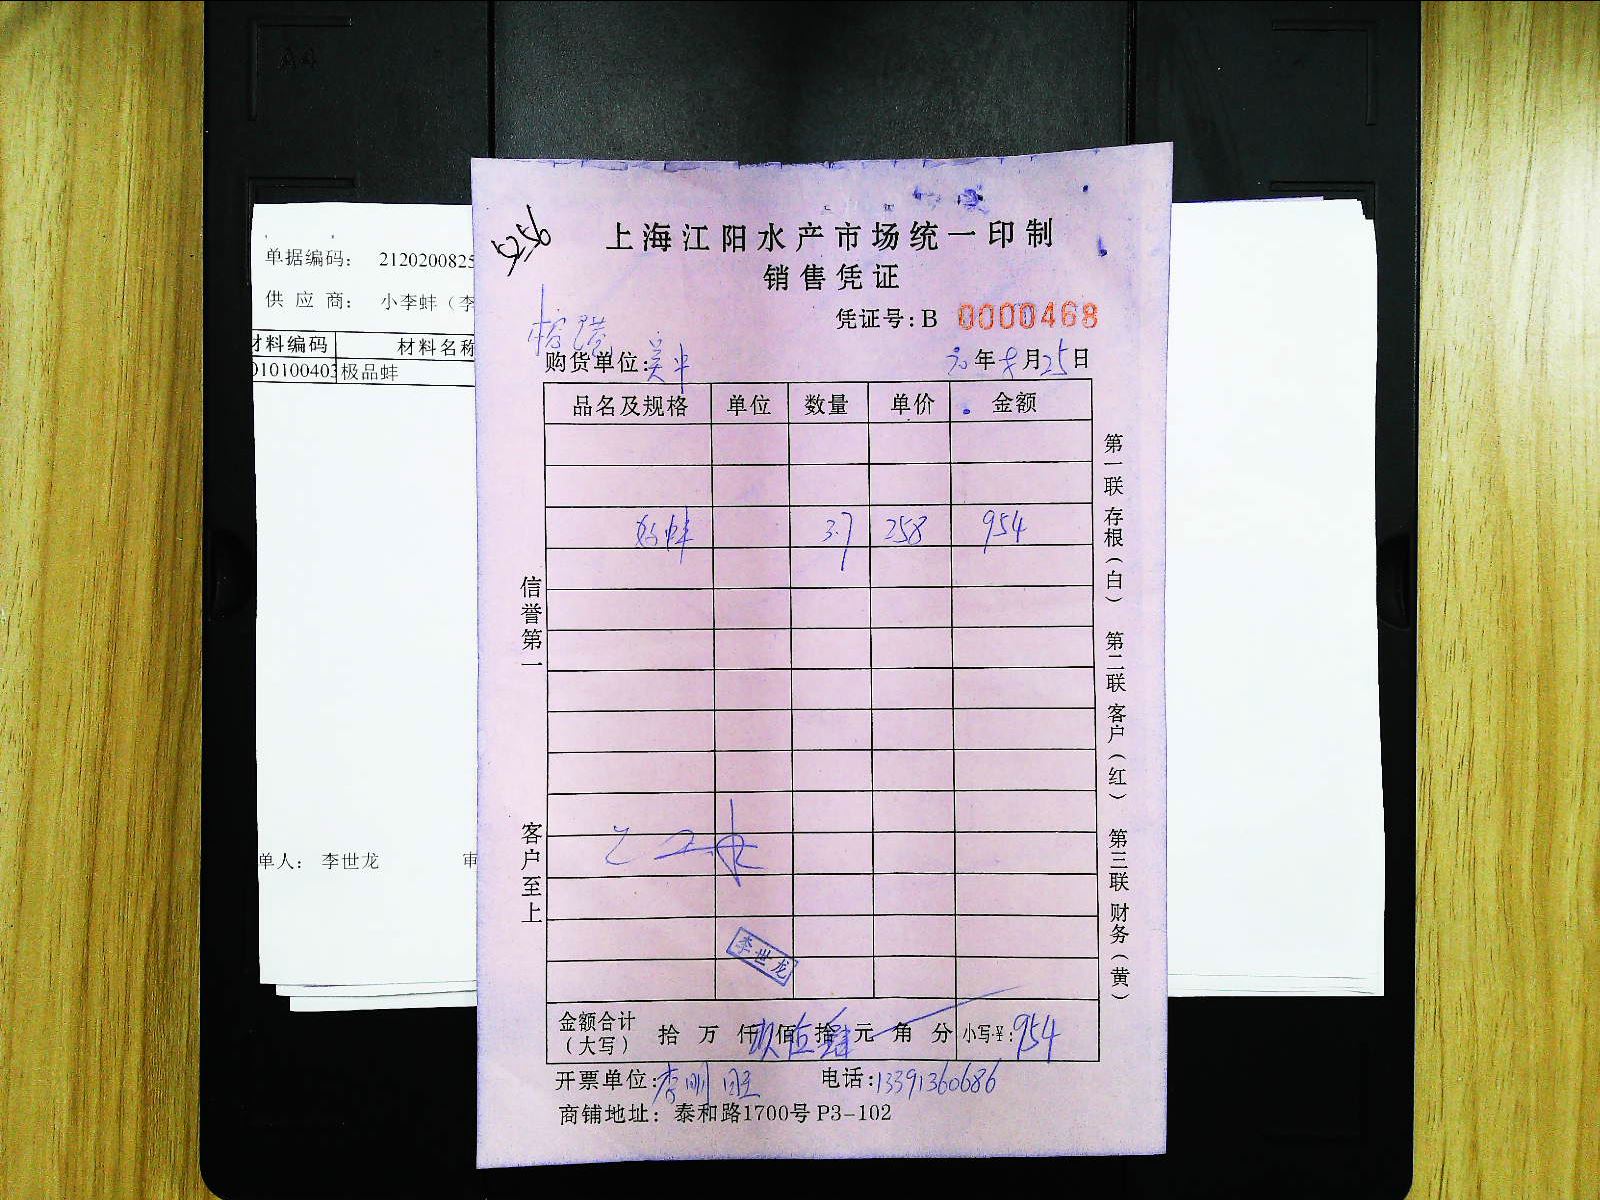 5256
上海江阳水产市场统一印制
销售凭证
凭证号：B 0000468
购货单位：
年 月25日
品名及规格 单位 数量 单价 金额
好蚌 3.7 258 954
信誉第一
客户至上
第一联 存根（白） 第二联 客户（红） 第三联 财务（黄）
李世龙
金额合计（大写） 拾 万 仟玖佰伍拾肆元 角 分 小写¥：954
开票单位：李刚旺 电话：13391360686
商铺地址：泰和路1700号 P3-102
单据编码： 2120200825
供 应 商： 小李蚌（李
材料编码 材料名称
010100403 极品蚌
单人： 李世龙 审
A4